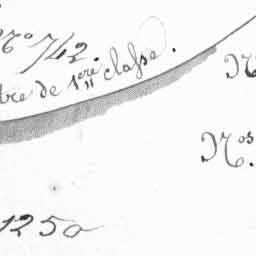 N° 742
tre de 1ère classe.
N
Nos.
1250